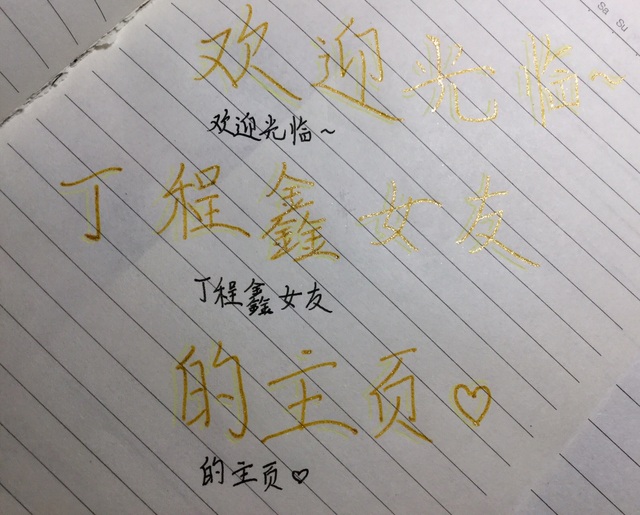 Sa Su
欢迎光临~
欢迎光临~
丁程鑫女友
丁程鑫女友
的主页♡
的主页♡